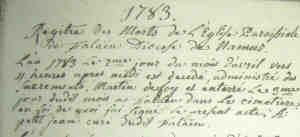 1783
Registre des Morts de L'Eglise Paroissiale
de patain Diocese de Namur
L'an 1783 le 2me jour du mois d'avril vers
11 heures apres midi est decedé, administré des
sacremens, Martin et enterré le 4me
jour dudit mois au patain dans le cimetiere
en foi de quoi j'ai signé
petit jean curé dudit patain